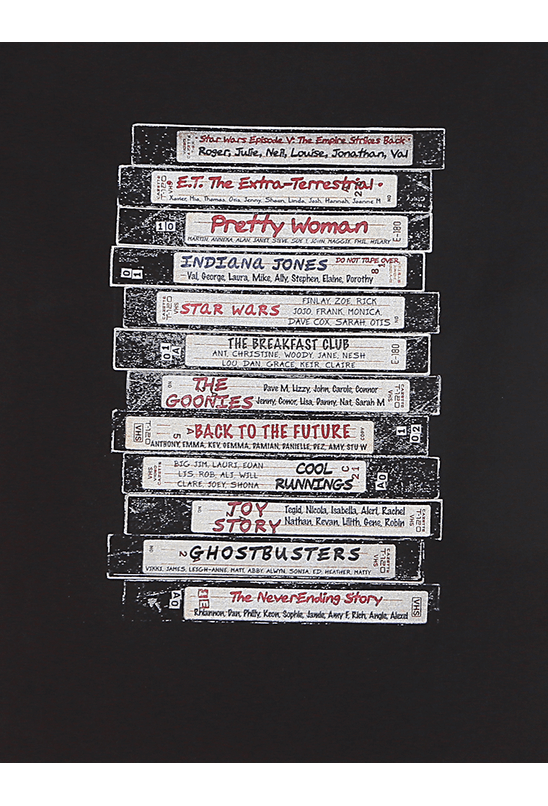 Star Wars Episode V: The Empire Strikes Back
Roger, Julie, Neil, Louise, Jonathan, Val
E.T. The Extra-Terrestrial
Xavier, Mia, Thomas, Otis, Jenny, Shaun, Linda, Josh, Hannah, Joanne M
10
Pretty Woman
MARTIN, ANNEXA, ALAN, JANET, STEVE, SUE J, JOHN, MAGGIE, PHIL, HILARY
E-180
01
INDIANA JONES
DO NOT TAPE OVER
Val, George, Laura, Mike, Ally, Stephen, Elaine, Dorothy
81
STAR WARS
FINLAY, ZOE, RICK
JOJO, FRANK, MONICA,
DAVE COX, SARAH, OTIS
01
A
THE BREAKFAST CLUB
ANT, CHRISTINE, WOODY, JANE, NESH
LOU, DAN, GRACE, KEIR, CLAIRE
E-180
THE
GOONIES
Dave M, Lizzy, John, Carole, Connor
Jenny, Conor, Lisa, Danny, Nat, Sarah M
CASSETTE
T-120
VHS
VHS
T-120
5
A
BACK TO THE FUTURE
ANTHONY, EMMA, KEV, GEMMA, DAMIAN, DANIELLE, PEZ, AMY, STU W
1
02
BIG JIM, LAURI, EUAN
LIS, ROB, ALI, WILL
CLARE, JOEY, SHONA
COOL
RUNNINGS
C
21
A0
TOY
STORY
Tegid, Nicola, Isabella, Alert, Rachel
Nathan, Revan, Lilith, Gene, Robin
CASSETTE
T-120
VHS
2
GHOSTBUSTERS
VIKKI, JAMES, LEIGH-ANNE, MATT, ABBY, ALWYN, SONIA, ED, HEATHER, MATTY
CASSETTE
T-120
VHS
A0
The NeverEnding Story
Rhiannon, Dan, Philly, Keon, Sophie, Jamie, Amy F, Rich, Angie, Alexei
VHS